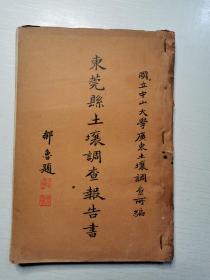 國立中山大學廣東土壤調查所編
東莞縣土壤調查報告書
鄒魯題